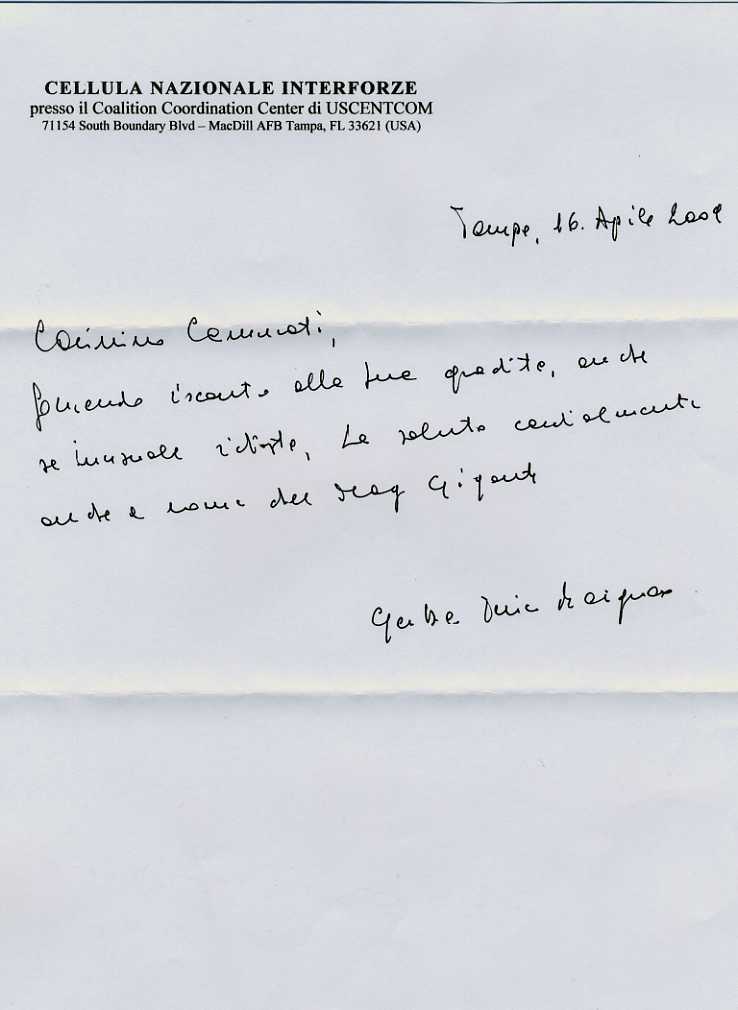 CELLULA NAZIONALE INTERFORZE
presso il Coalition Coordination Center di USCENTCOM
71154 South Boundary Blvd – MacDill AFB Tampa, FL 33621 (USA)
Tampa, 16. Aprile 2009
Carissimo Cammarati,
facendo riscontro alla Sua gradita, anche
se inusuale richiesta, La saluto cordialmente
anche a nome del Magg Gigante